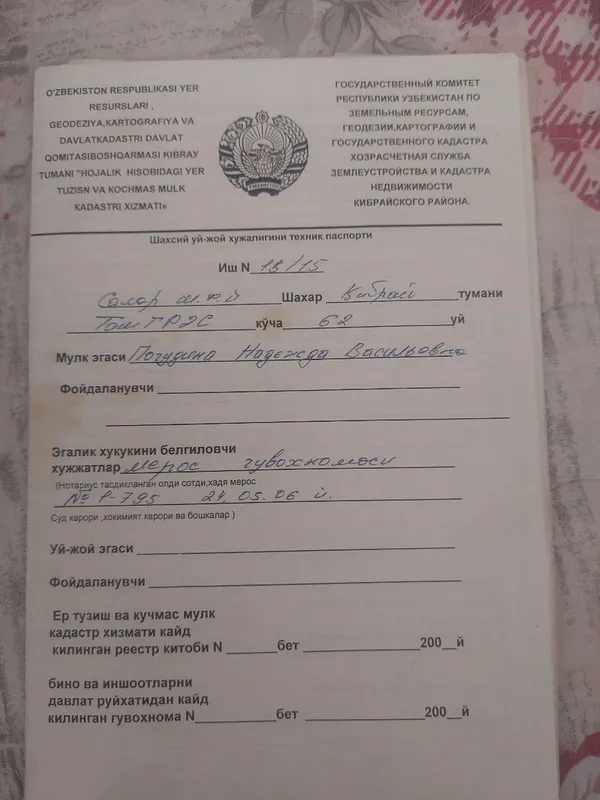 O'ZBEKISTON RESPUBLIKASI YER
RESURSLARI ,
GEODEZIYA,KARTOGRAFIYA VA
DAVLATKADASTRI DAVLAT
QOMITASIBOSHQARMASI KIBRAY
TUMANI "HOJALIK HISOBIDAGI YER
TUZISN VA KOCHMAS MULK
KADASTRI XIZMATI»
ГОСУДАРСТВЕННЫЙ КОМИТЕТ
РЕСПУБЛИКИ УЗБЕКИСТАН ПО
ЗЕМЕЛЬНЫМ РЕСУРСАМ,
ГЕОДЕЗИИ,КАРТОГРАФИИ И
ГОСУДАРСТВЕННОГО КАДАСТРА
ХОЗРАСЧЕТНАЯ СЛУЖБА
ЗЕМЛЕУСТРОЙСТВА И КАДАСТРА
НЕДВИЖИМОСТИ
КИБРАЙСКОГО РАЙОНА.
Шахсий уй-жой хужалигини техник паспорти
Иш N 13/15
Салар Шахар Кибрай тумани
ТашГРЭС кўча 62 уй
Мулк эгаси Погудина Надежда Васильевна
Фойдаланувчи
Эгалик хукукини белгиловчи
хужжатлар мерос гувохномаси
(Нотариус тасдикланган олди сотди,хадя мерос
№ 1-795 24.05.06 й.
Суд карори ,хокимият карори ва бошкалар )
Уй-жой эгаси
Фойдаланувчи
Ер тузиш ва кучмас мулк
кадастр хизмати кайд
килинган реестр китоби N бет 200 й
бино ва иншоотларни
давлат руйхатидан кайд
килинган гувохнома N бет 200 й